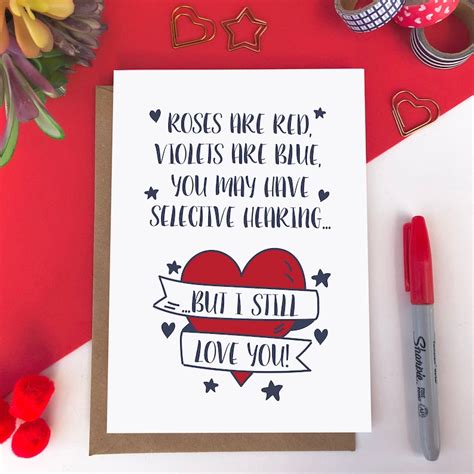 ROSES ARE RED,
VIOLETS ARE BLUE,
YOU MAY HAVE
SELECTIVE HEARING...
...BUT I STILL
LOVE YOU!
Sharpie